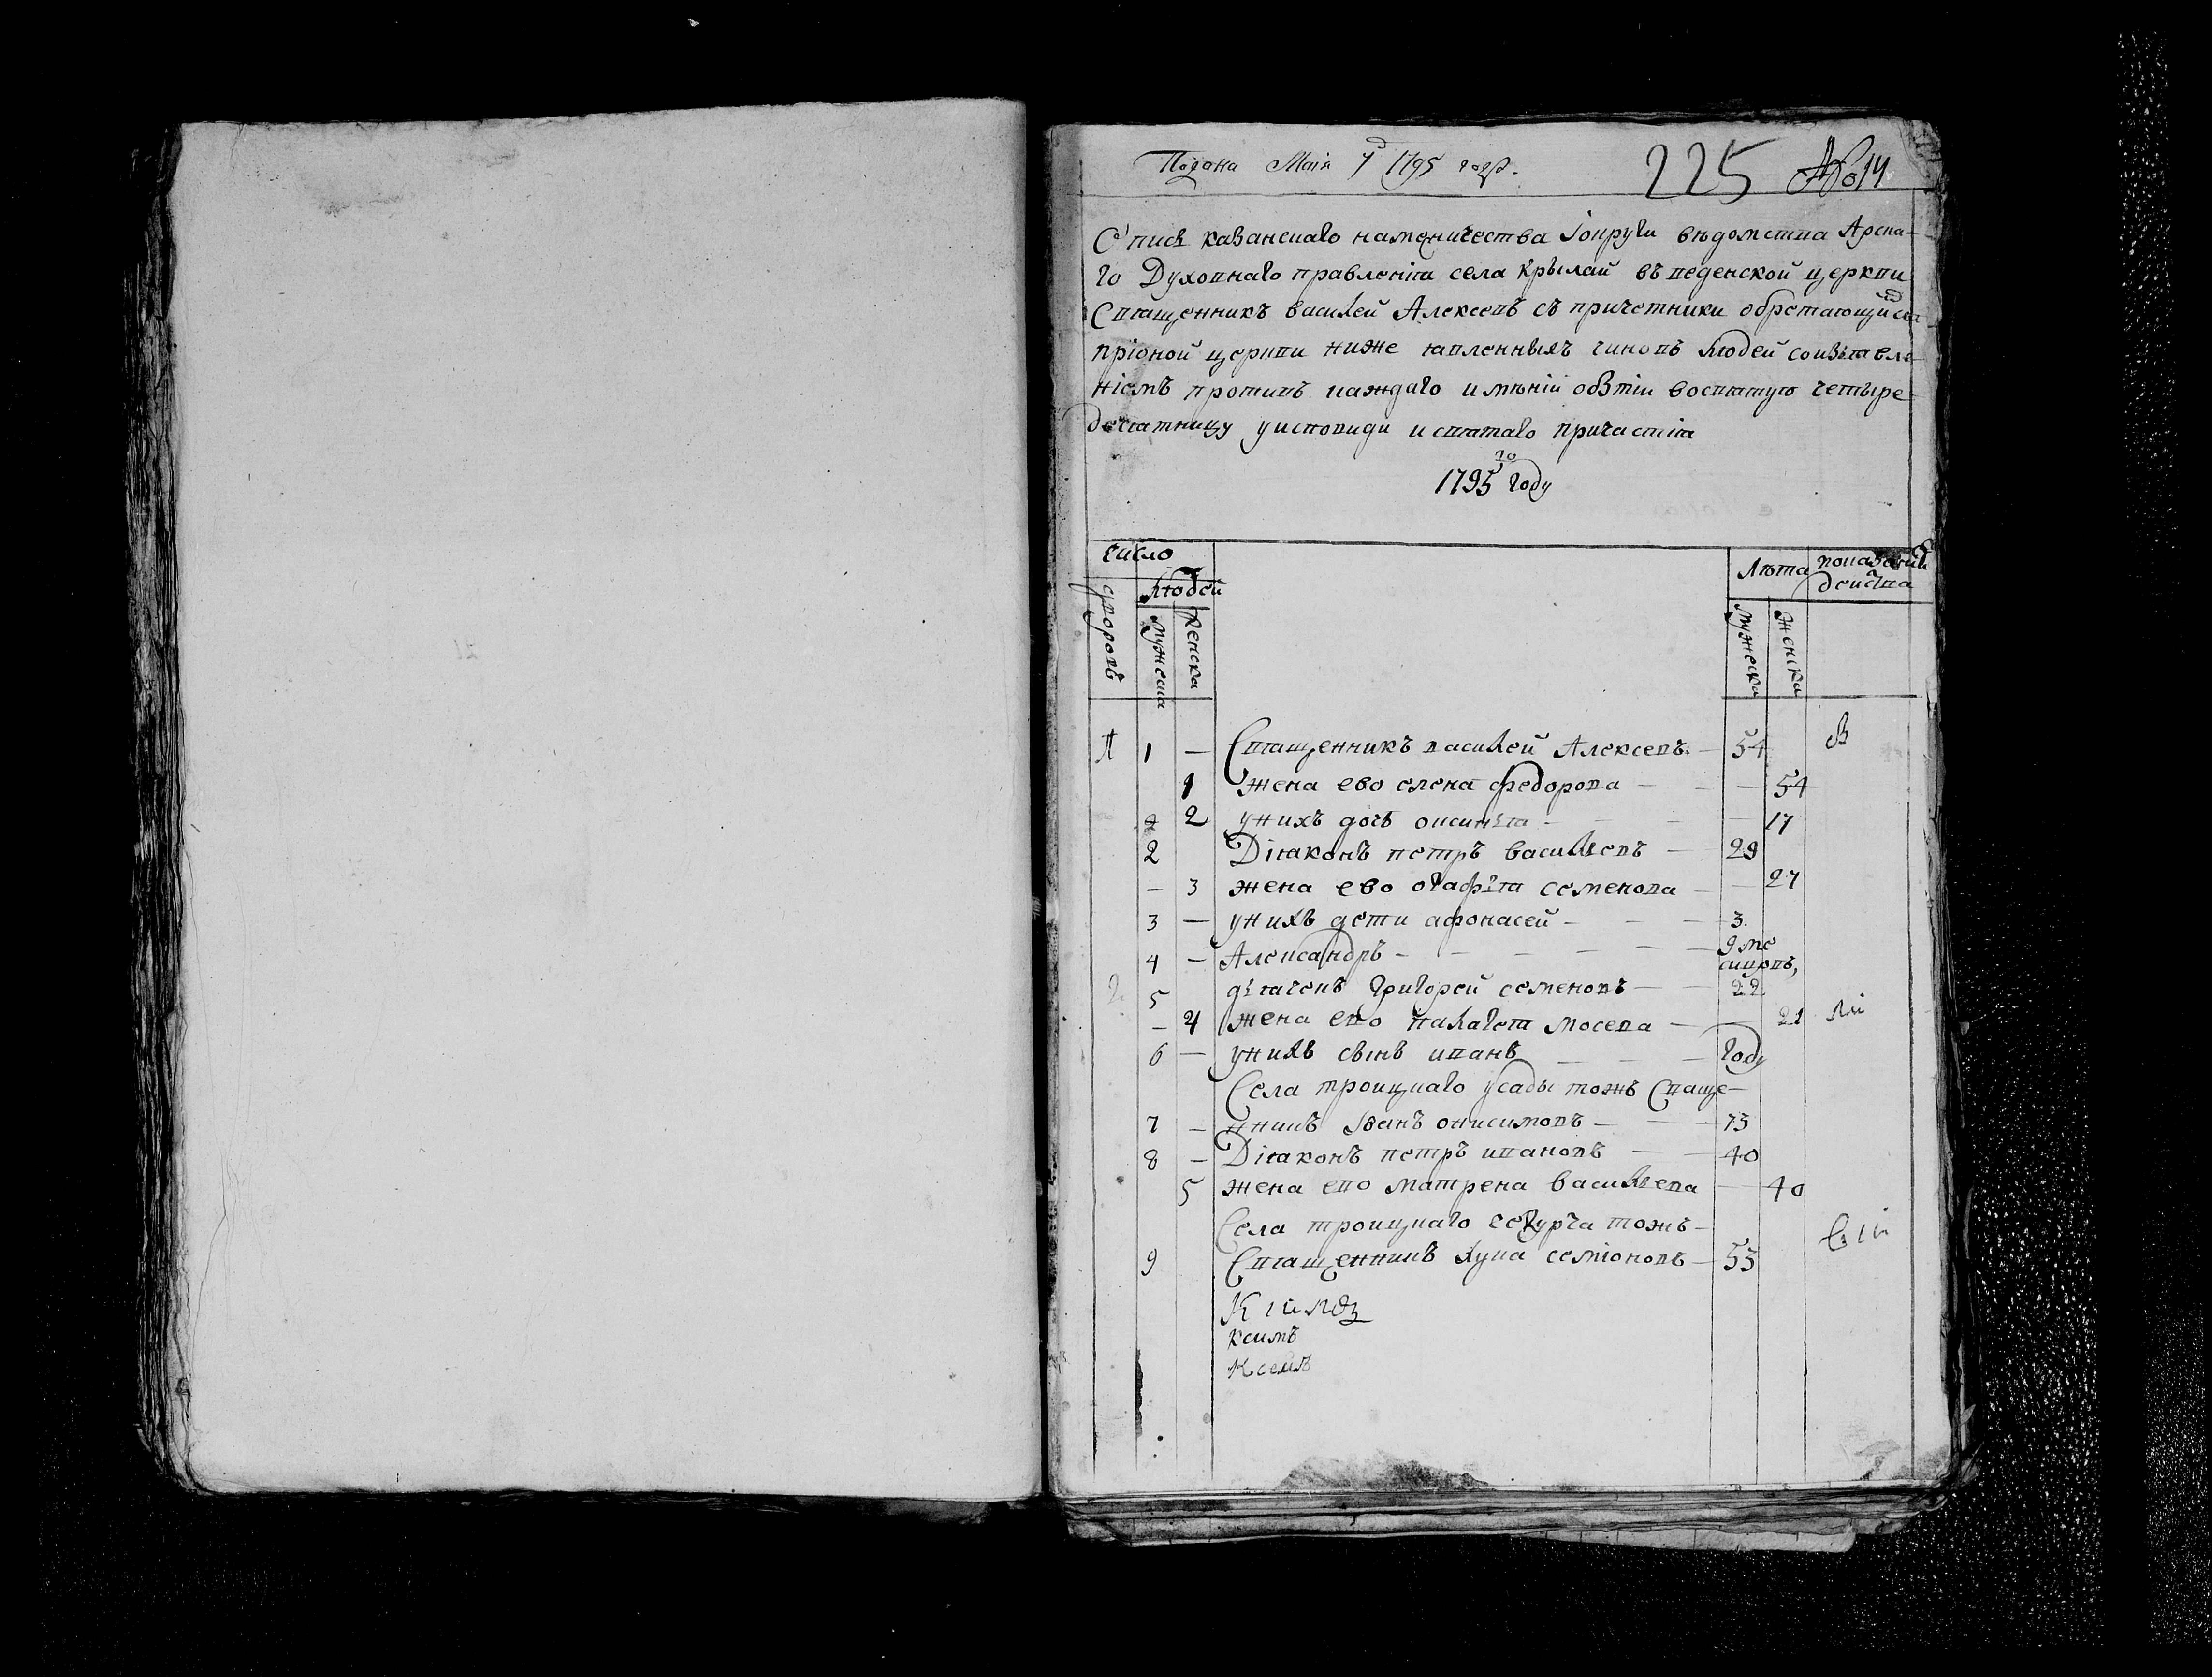 Подана Маія 7д 1795 году.
225 №14
Спись казанскаго намесничества іокруги вѣдомства Арска-
го Духовнаго правленія села крылай въведенской церкви
Священникъ василей Алексеевъ съ причетники обретающийся
пріоной церкви ниже явленныхъ чиновъ людей соизъявле-
ніемъ противъ каждаго имѣній обѣтіи восвятую четыре
десятницу уисповиди исвятаго причастія
1795 го году
число
людей
Лѣта
показаніи
действа
дворовъ
мужеска
женска
мужеска
женска
А 1 — Священникъ василей Алексеевъ — 54 В
1 жена ево елена федорова — — 54
2 унихъ дочь оксинья — — 17
2 Діаконъ петръ васильевъ — 29
— 3 жена ево огафья семенова — — 27
3 — унихъ дети афонасей — 3
4 — Александръ — 9 ме
сицовъ,
5 дьячекъ григорей семеновъ — 22
— 4 жена ево палагея мосева — 21
6 — унихъ сынъ иванъ — году
Села троицкаго усады тожъ Священ-
7 — нникъ Іванъ онисимовъ — 73
8 — Діаконъ петръ ивановъ — 40
5 жена ево матрена васильева — 40
Села троицкаго тожъ —
9 Священникъ лука семіоновъ — 53